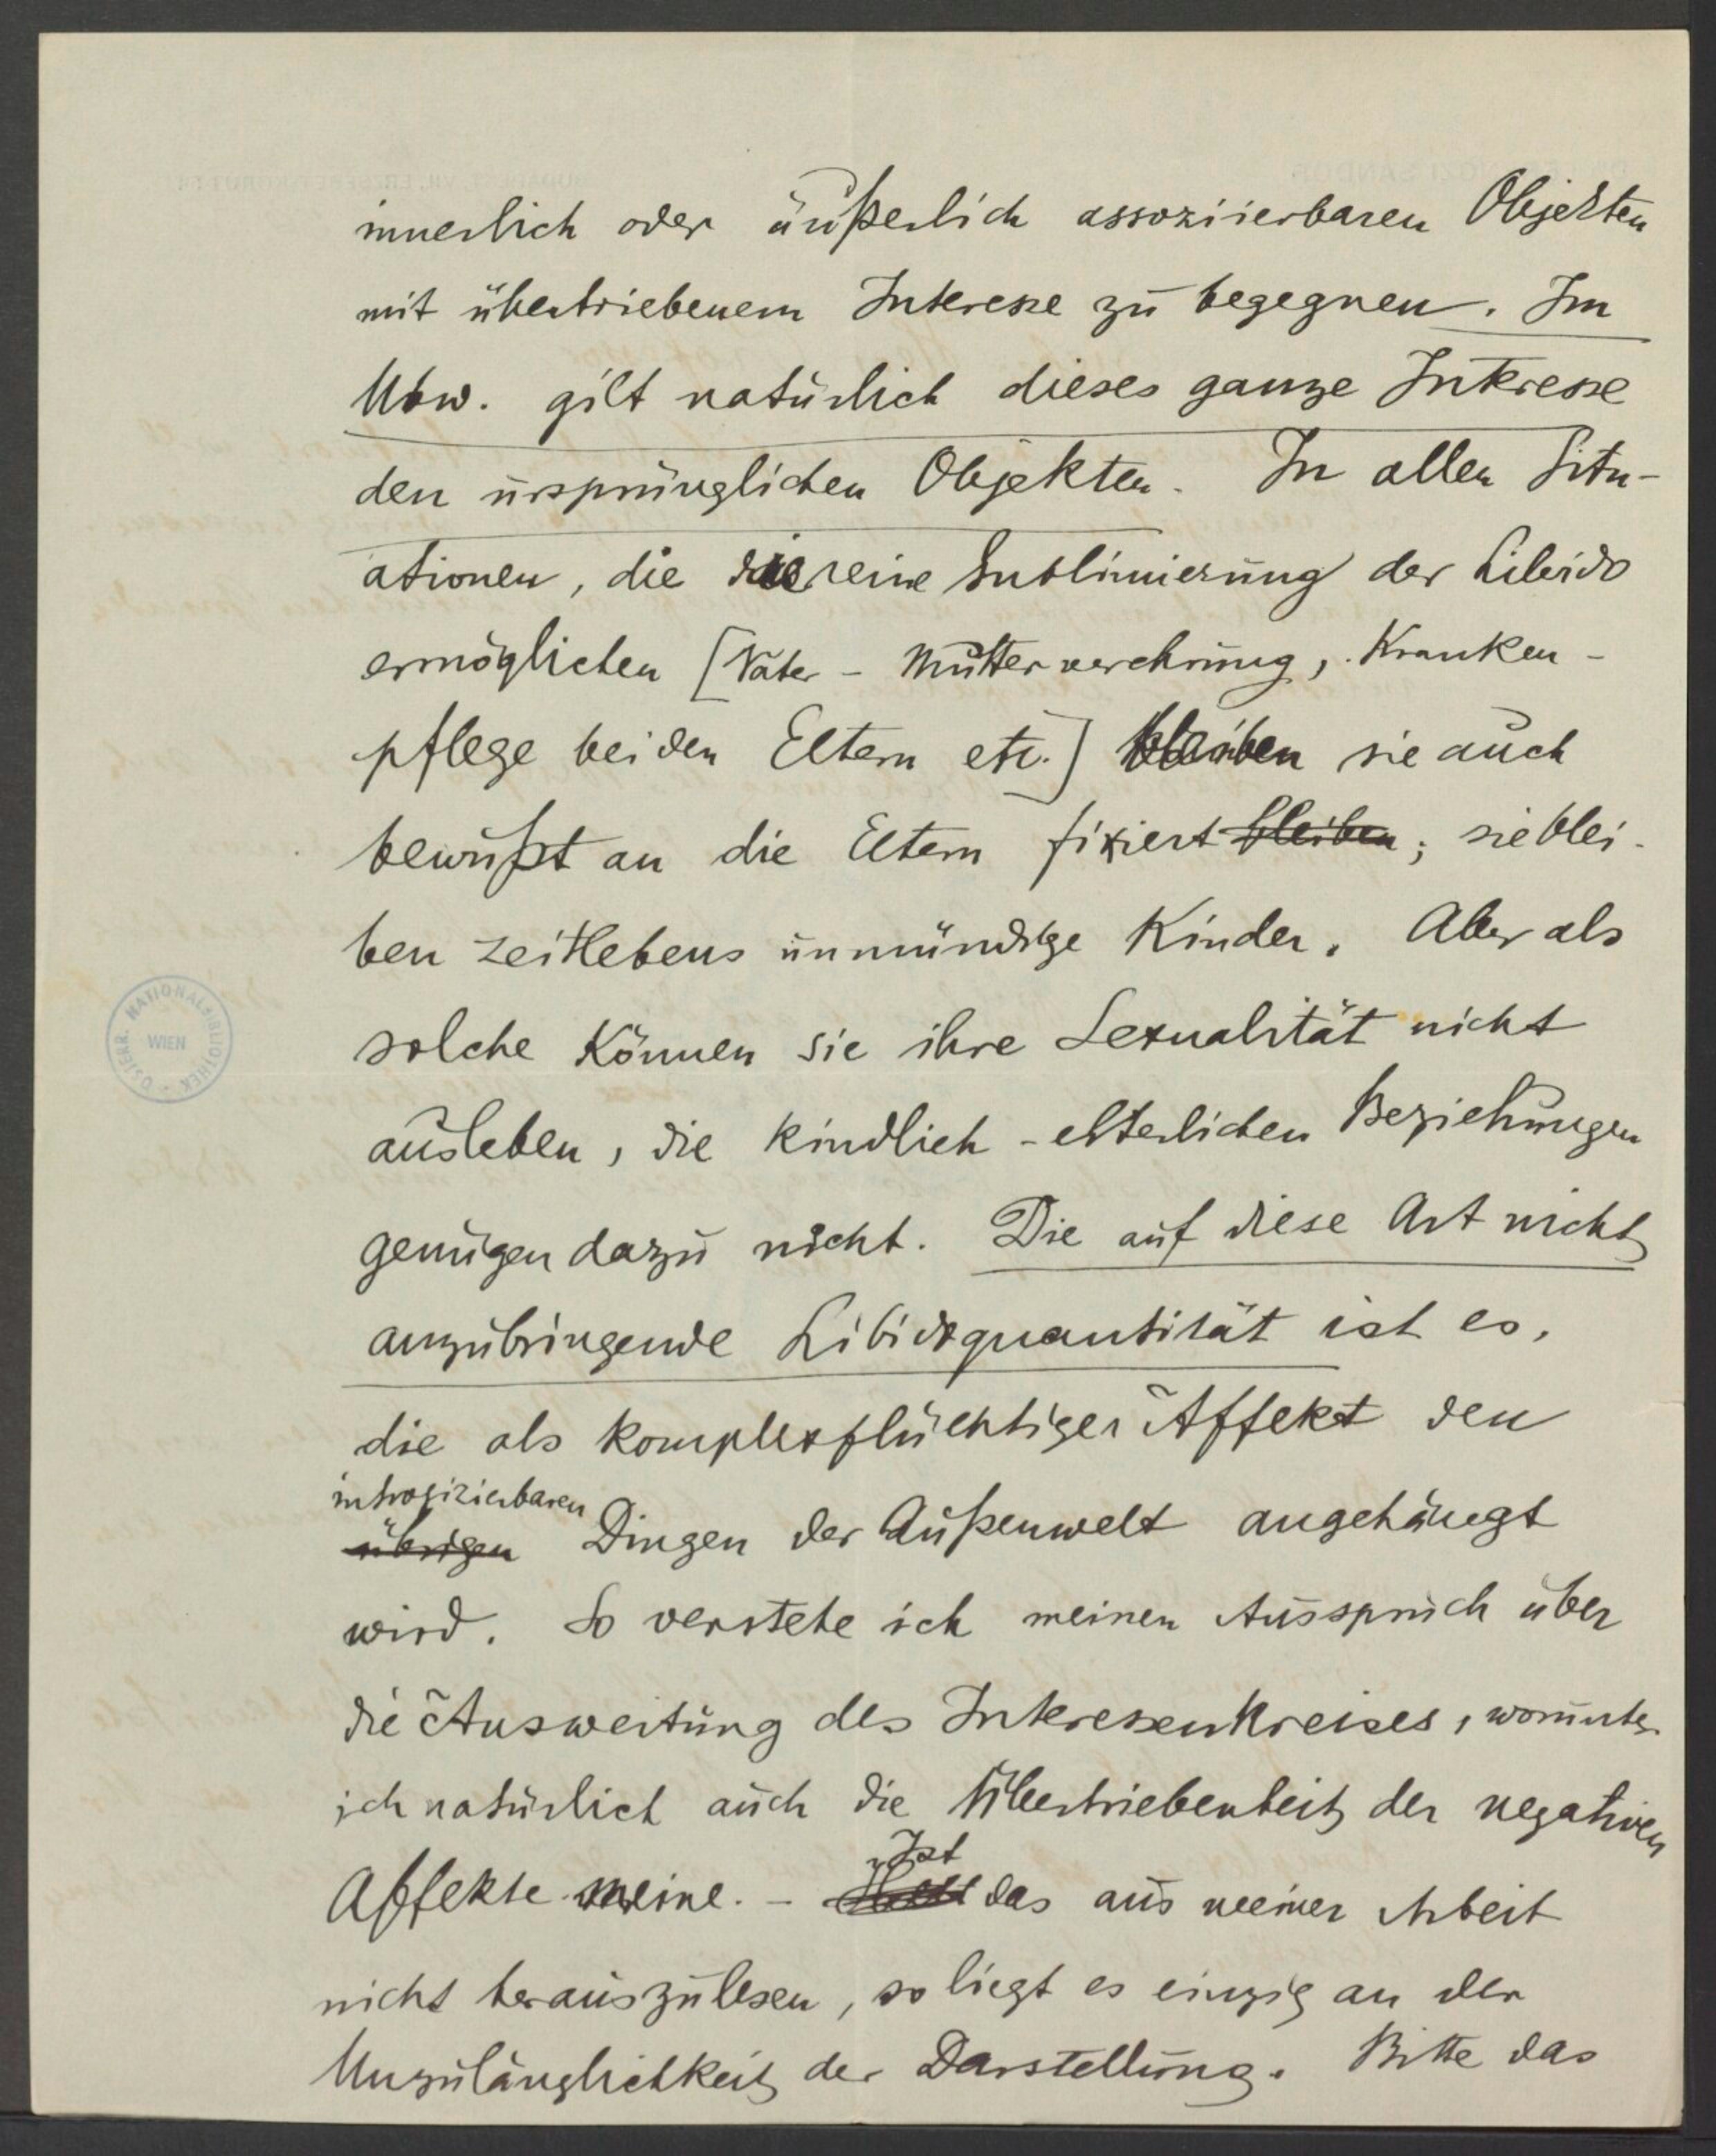 innerlich oder äußerlich assoziierbaren Objekten
mit übertriebenem Interesse zu begegnen. Im
Ubw. gilt natürlich dieses ganze Interesse
den ursprünglichen Objekten. In allen Situ-
ationen, die eine Sublimierung der Libido
ermöglichen [Vater - Mutterverehrung, Kranken-
pflege bei den Eltern etc.] bleiben sie auch
bewußt an die Eltern fixiert bleiben; sie blei-
ben zeitlebens unmündige Kinder. Aber als
solche können sie ihre Sexualität nicht
ausleben, die kindlich-elterlichen Beziehungen
genügen dazu nicht. Die auf diese Art nicht
anzubringende Libidoquantität ist es,
die als komplexflüchtiger Affekt den
introjizierbaren
übrigen Dingen der Außenwelt angehängt
wird. So verstehe ich meinen Ausspruch über
die Ausweitung des Interessenkreises, worunter
ich natürlich auch die Übertriebenheit der negativen
Ist
Affekte meine. - das aus meiner Arbeit
nicht herauszulesen, so liegt es einzig an der
Unzulänglichkeit der Darstellung. Bitte das
ÖSTERR. NATIONALBIBLIOTHEK
WIEN